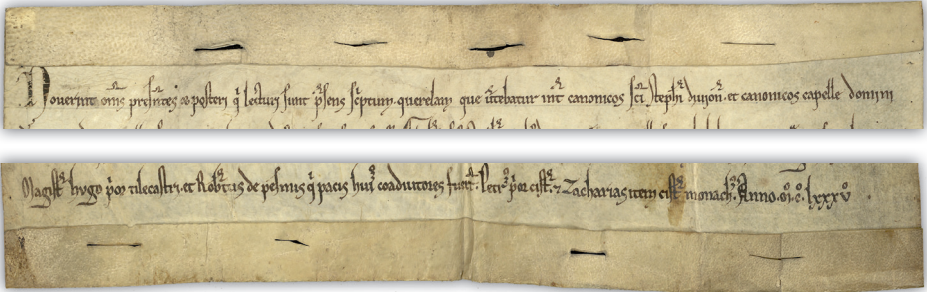 Noverint om̅s presentes et posteri q̅ lecturi sunt p̅sens sc̅ptum querelam que v̅tebatur int̅ canonicos sc̅i steph̅i divion̅. et canonicos capelle domini
Magist̅ hugo p̅or tilecastri. et Rob̅tus de pesmis q̅ pacis hui᷒ coadiutores fuer̅t. Petr᷒ p̅or cist̅. ⁊ Zacharias item cist̅ monach᷒. Anno. m̊. c̊. lxxxv̊